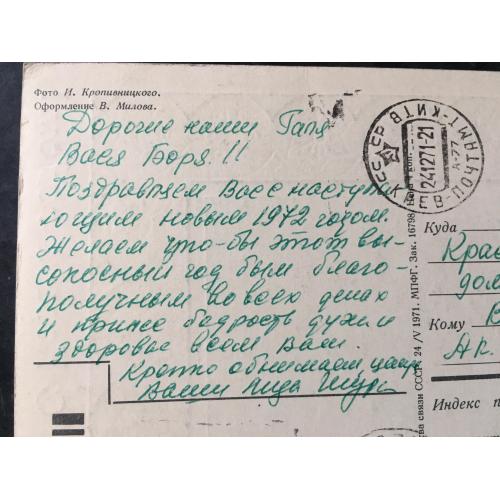 Фото И. Кропивницкого.
Оформление В. Милова.
Дорогие наши Галя
Вася Боря!!
Поздравляем Вас с наступа
ющим новым 1972 годом.
Желаем что-бы этот ви-
сокосный год был благо-
получным во всех делах
и принес бодрость духа и
здоровье всем Вам.
Крепко обнимаем, целуе
Ваши Лида Шура
СССР
КИЇВ-ПОЧТАМТ-КИТВ
241271-21
А-77
Куда
Крас
дом
Кому
В
Ар.
Индекс п
ва связи СССР. 24/V 1971. МПФГ. Зак. 16798. Цена коп.